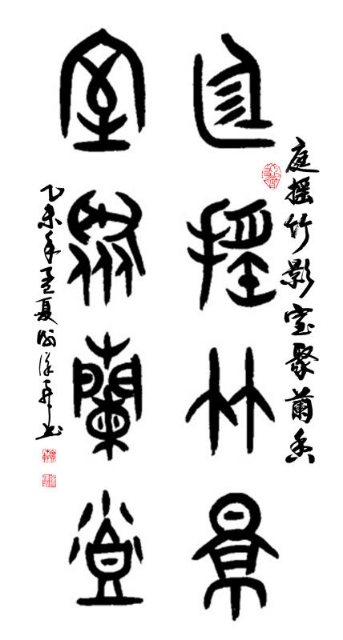 庭摇竹影室聚蘭香
庭摇竹景
室聚蘭香
乙未年孟夏
书